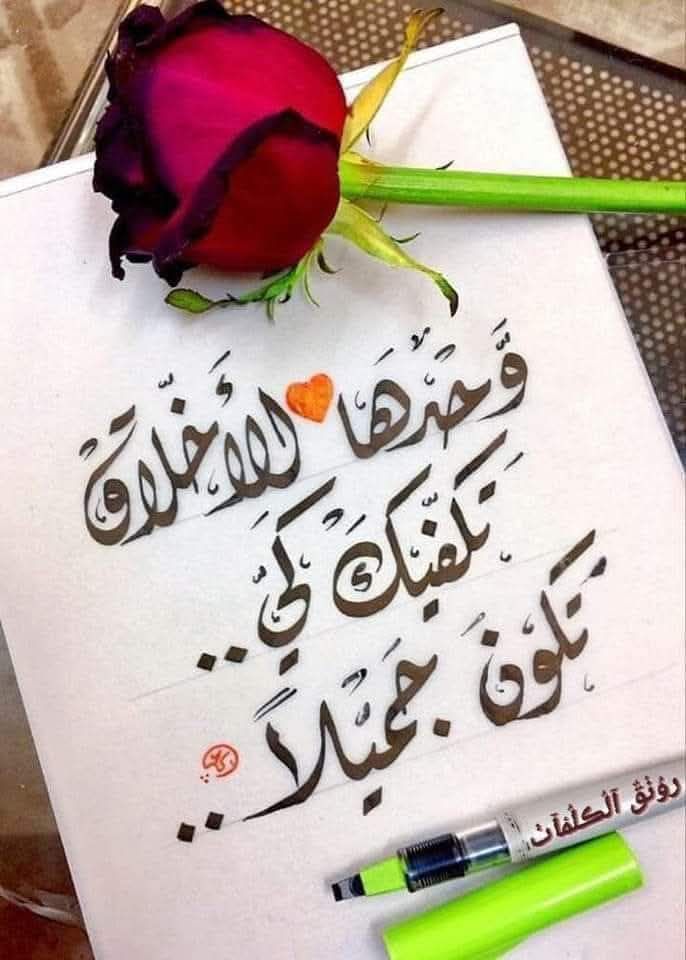 وَحْدَهَا الأَخْلَاقْ
تَكْفِيْكَ كَيْ ..
تَكُوْنُ جَمِيْلاً ..
رَوْنَقْ آلْكَلِمَآتْ